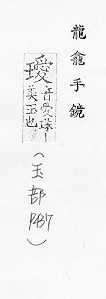 龍龕手鏡
瑷音愛珠！
美玉也
（玉部
P437）